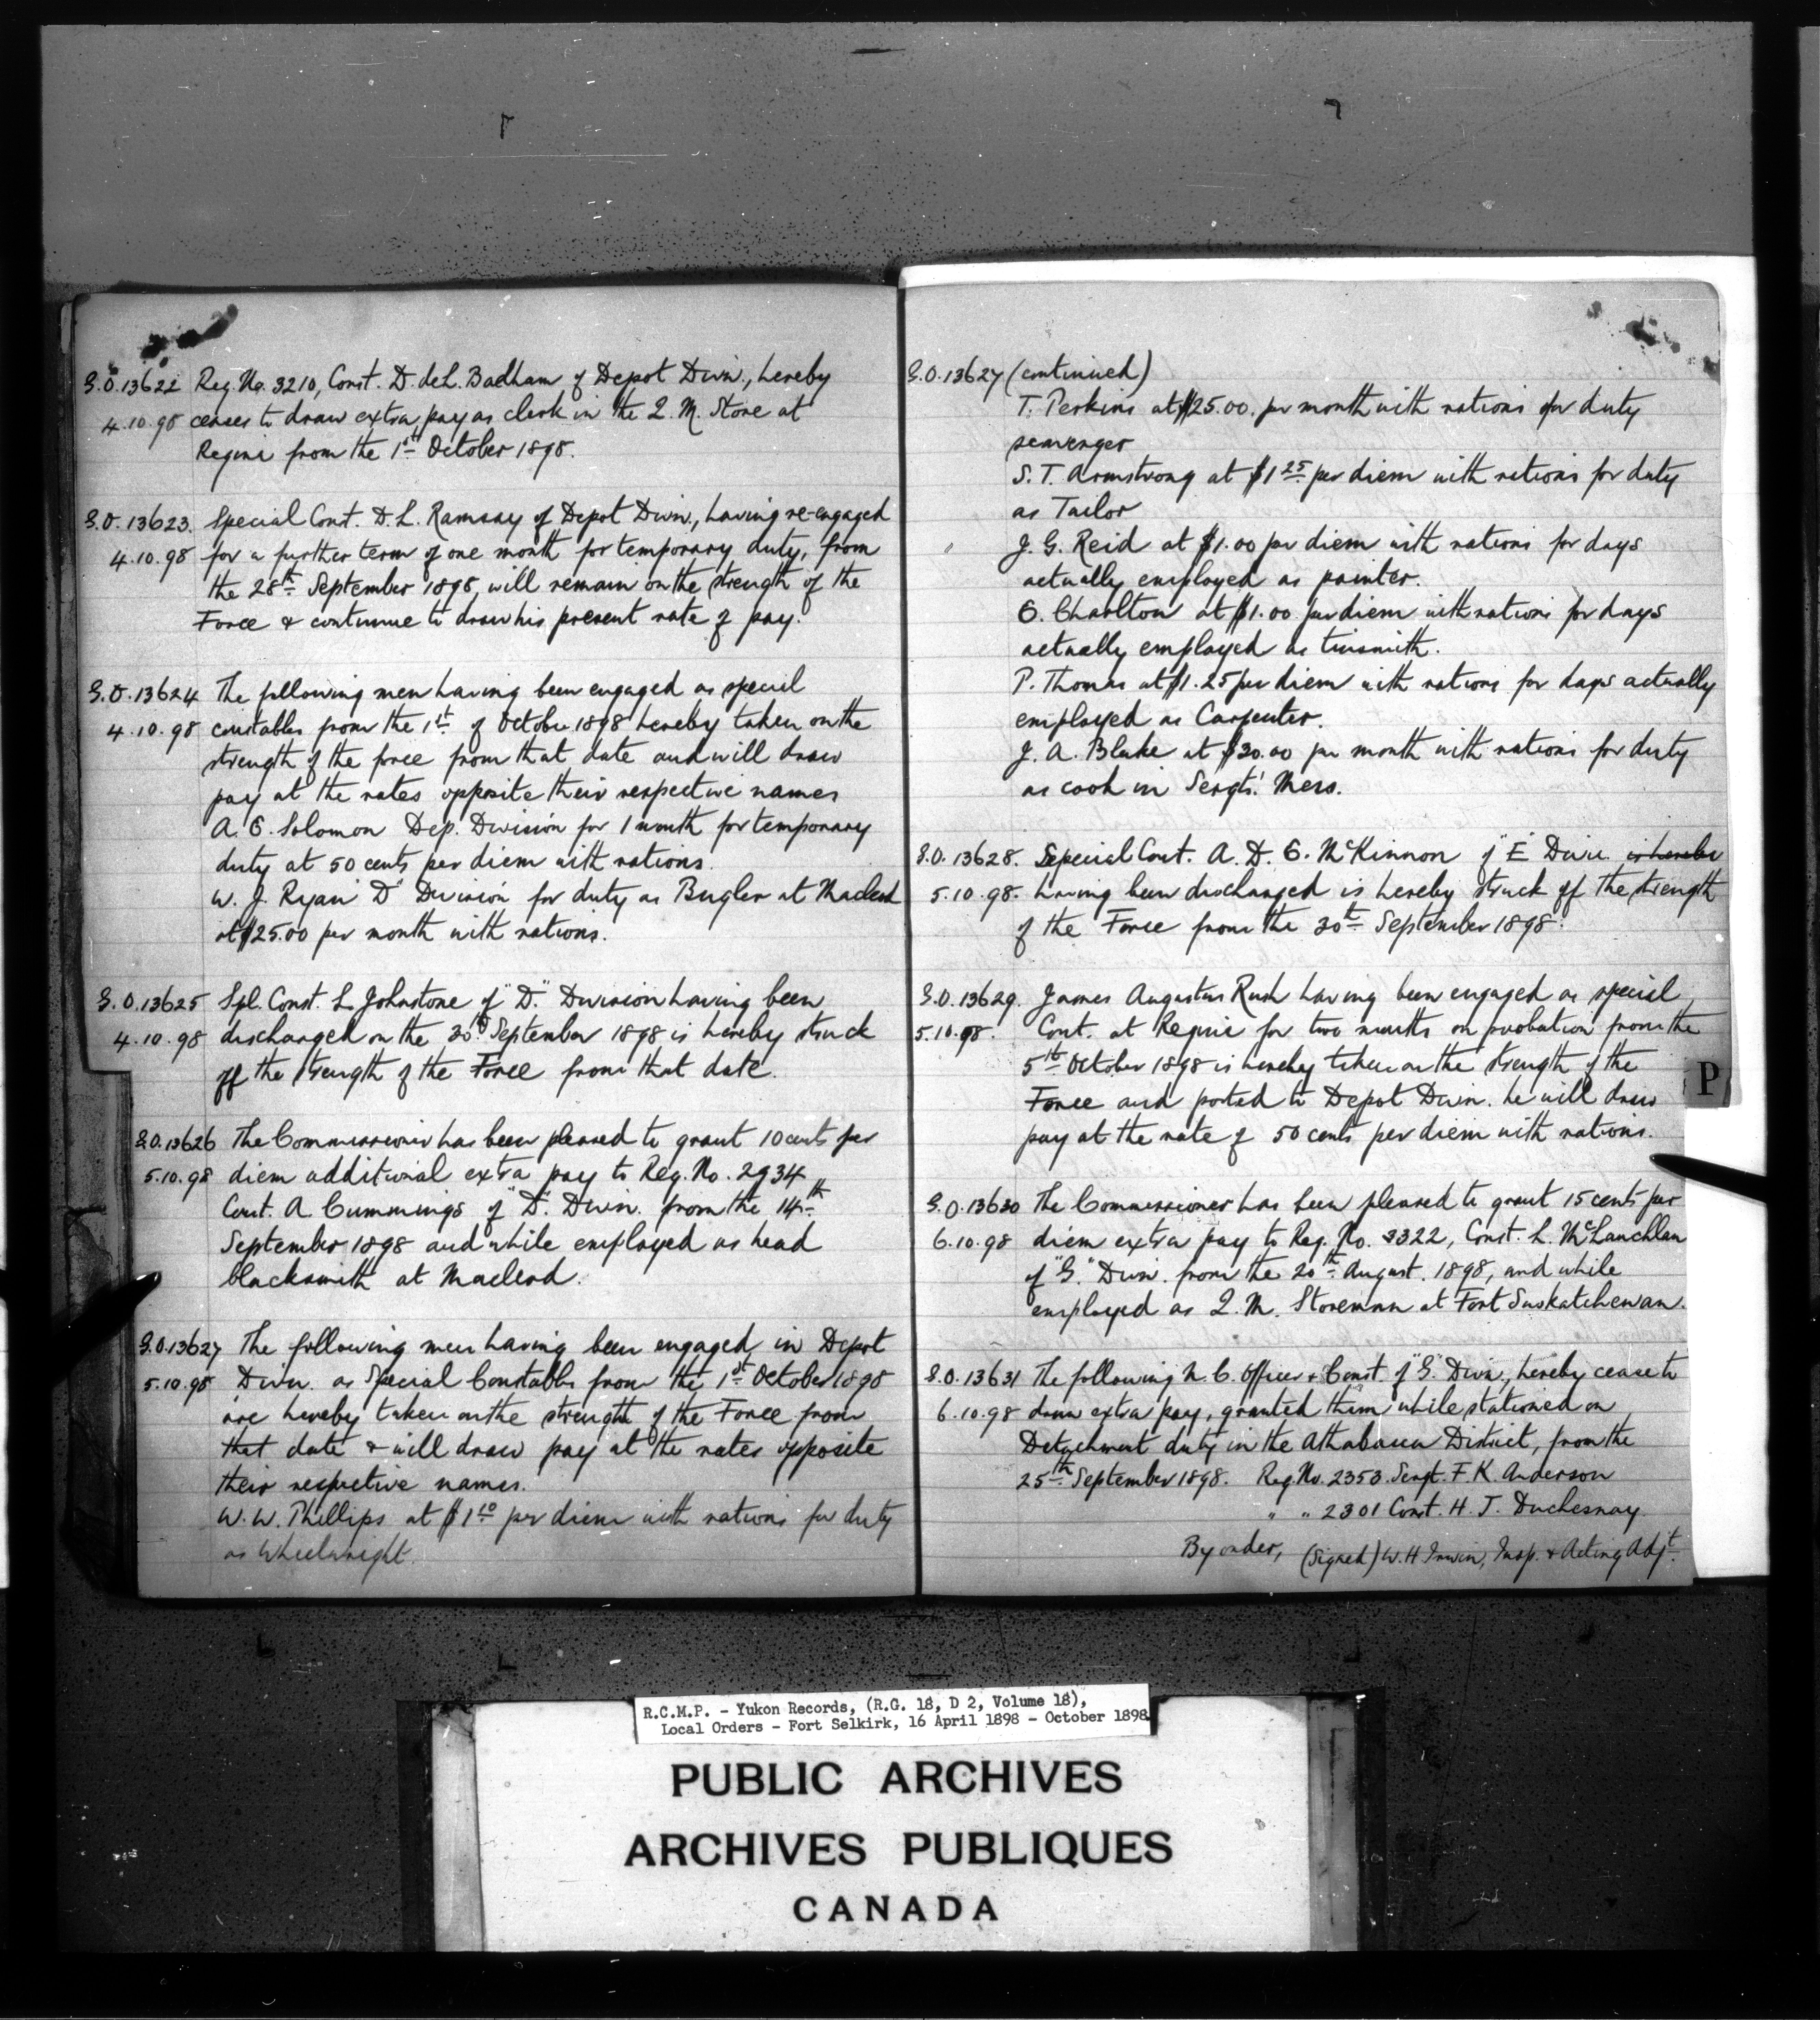 G.O. 13622 Reg. No. 3210, Const. D. deL. Badham of Depot Divn., hereby
4.10.98 ceases to draw extra pay as clerk in the Q. M. Store at
Regina from the 1st October 1898.
G.O. 13623. Special Const. D. L. Ramsay of Depot Divn., having re-engaged
4.10.98 for a further term of one month for temporary duty, from
the 28th September 1898, will remain on the strength of the
Force & continue to draw his present rate of pay.
G.O. 13624 The following men having been engaged as special
4.10.98 constables from the 1st of October 1898 hereby taken on the
strength of the force from that date and will draw
pay at the rates opposite their respective names
A. E. Solomon Dep. Division for 1 month for temporary
duty at 50 cents per diem with rations.
W. J. Ryan "D" Division for duty as Bugler at Macleod
at $25.00 per month with rations.
G.O. 13625 Spl. Const. L. Johnstone of "D." Division having been
4.10.98 discharged on the 30th September 1898 is hereby struck
off the strength of the Force from that date.
G.O. 13626 The Commissioner has been pleased to grant 10 cents per
5.10.98 diem additional extra pay to Reg. No. 2934
Const. A Cummings of "D". Divn. from the 14th
September 1898 and while employed as head
blacksmith at Macleod.
G.O. 13627 The following men having been engaged in Depot
5.10.98 Divn. as Special Constables from the 1st October 1898
are hereby taken on the strength of the Force from
that date & will draw pay at the rates opposite
their respective names.
W. W. Phillips at $1 10 per diem with rations for duty
as Wheelwright.
G.O. 13627 (continued)
T. Perkins at $25.00. per month with rations for duty
scavenger
S. T. Armstrong at $1 25 per diem with rations for duty
as Tailor
" J. G. Reid at $1.00 per diem with rations for days
actually employed as painter.
E. Charlton at $1.00 per diem with rations for days
actually employed as tinsmith.
P. Thomas at $1.25 per diem with rations for days actually
employed as Carpenter.
J. A. Blake at $30.00 per month with rations for duty
as cook in Sergts'. Mess.
G.O. 13628. Special Const. A. D. E. McKinnon of "E" Divn. is hereby
5.10.98. having been discharged is hereby struck off the strength
of the Force from the 30th September 1898.
G.O. 13629. James Augustus Rush having been engaged as special
5.10.98. Const. at Regina for two months on probation from the
5th October 1898 is hereby taken on the strength of the
Force and posted to Depot Divn. he will draw
pay at the rate of 50 cents per diem with rations.
G.O. 13630 The Commissioner has been pleased to grant 15 cents per
6.10.98 diem extra pay to Reg. No. 3322, Const. L. McLauchlan
of "G." Divn. from the 20th August. 1898, and while
employed as Q. M. Storeman at Fort Saskatchewan.
G.O. 13631 The following N. C. Officer & Const. of "G." Divn., hereby cease to
6.10.98 draw extra pay, granted them while stationed on
Detachment duty in the Athabasca District, from the
25th September 1898. Reg. No. 2353. Sergt. F. K. Anderson
" " 2301 Const. H. J. Duchesnay
By order, (Signed) W. H Irwin, Insp. & Acting Adjt.
P
R.C.M.P. - Yukon Records, (R.G. 18, D 2, Volume 18),
Local Orders - Fort Selkirk, 16 April 1898 - October 1898
PUBLIC ARCHIVES
ARCHIVES PUBLIQUES
CANADA